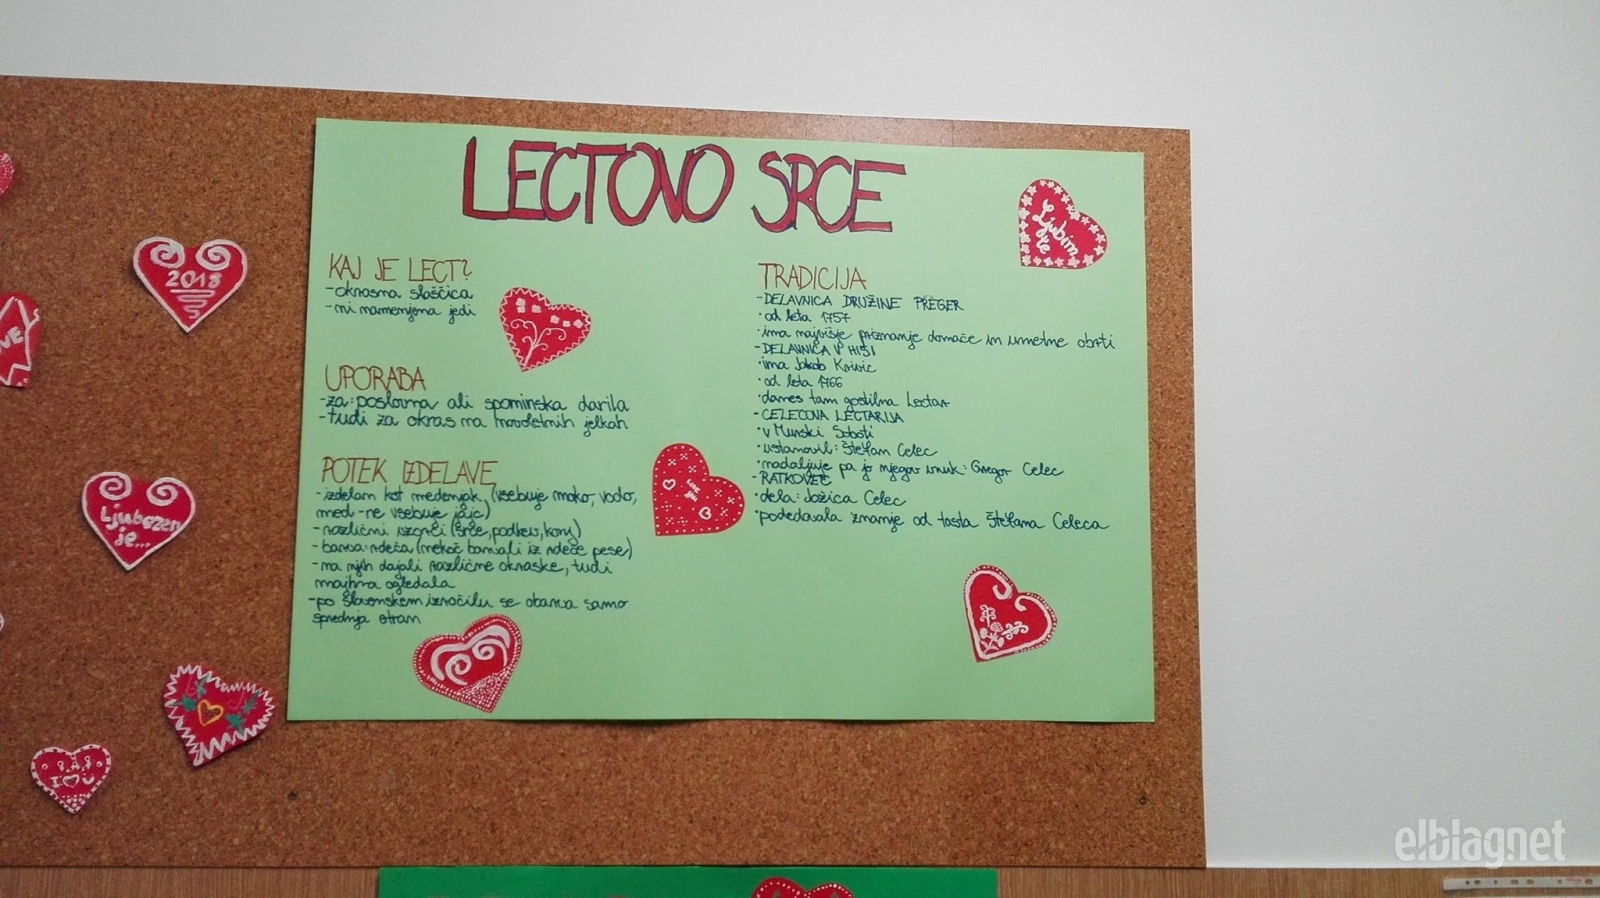 LECTOVO SRCE
KAJ JE LECT?
-okrasna slaščica
-ni namenjena jedi
UPORABA
-za: poslovna ali spominska darila
-tudi za okras na novoletnih jelkah
POTEK IZDELAVE
-izdelan kot medenjak, (vsebuje moko, vodo,
med -ne vsebuje jajc)
-različni vzorci (srce, podkev, konj)
-barva: rdeča (nekoč barvali iz rdeče pese)
-na njih dajali različne okraske, tudi
majhna ogledala
-po slovenskem izročilu se obarva samo
sprednja stran
TRADICIJA
-DELAVNICA DRUŽINE PERGER
•od leta 1757
•ima najvišje priznanje domače in umetne obrti
-DELAVNICA V HIŠI
•ima Jakob Krivic
•od leta 1766
•danes tam gostilna Lectar
-CELECOVA LECTARIJA
•v Murski Soboti
•ustanovil: Štefan Celec
•nadaljuje pa jo njegov vnuk: Gregor Celec
-RATKOVEC
•dela: Jožica Celec
•podedovala znanje od tasta Štefana Celeca
Ljubim
te
2018
Ljubezen
je...
I U
elblag.net